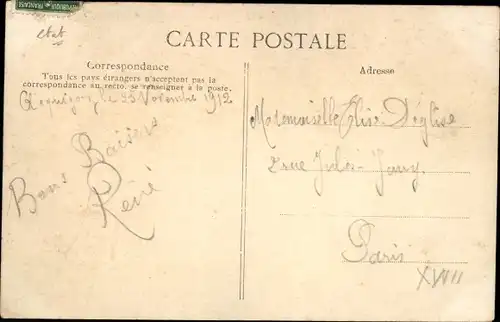 RÉPUBLIQUE FRANÇAISE
etat
CARTE POSTALE
Correspondance
Tous les pays étrangers n'acceptent pas la
correspondance au recto. se renseigner à la poste.
le 23 Novembre 1912
Bons Baisers
René
Adresse
Mademoiselle Élise Déglise
2 rue
Paris
XVII